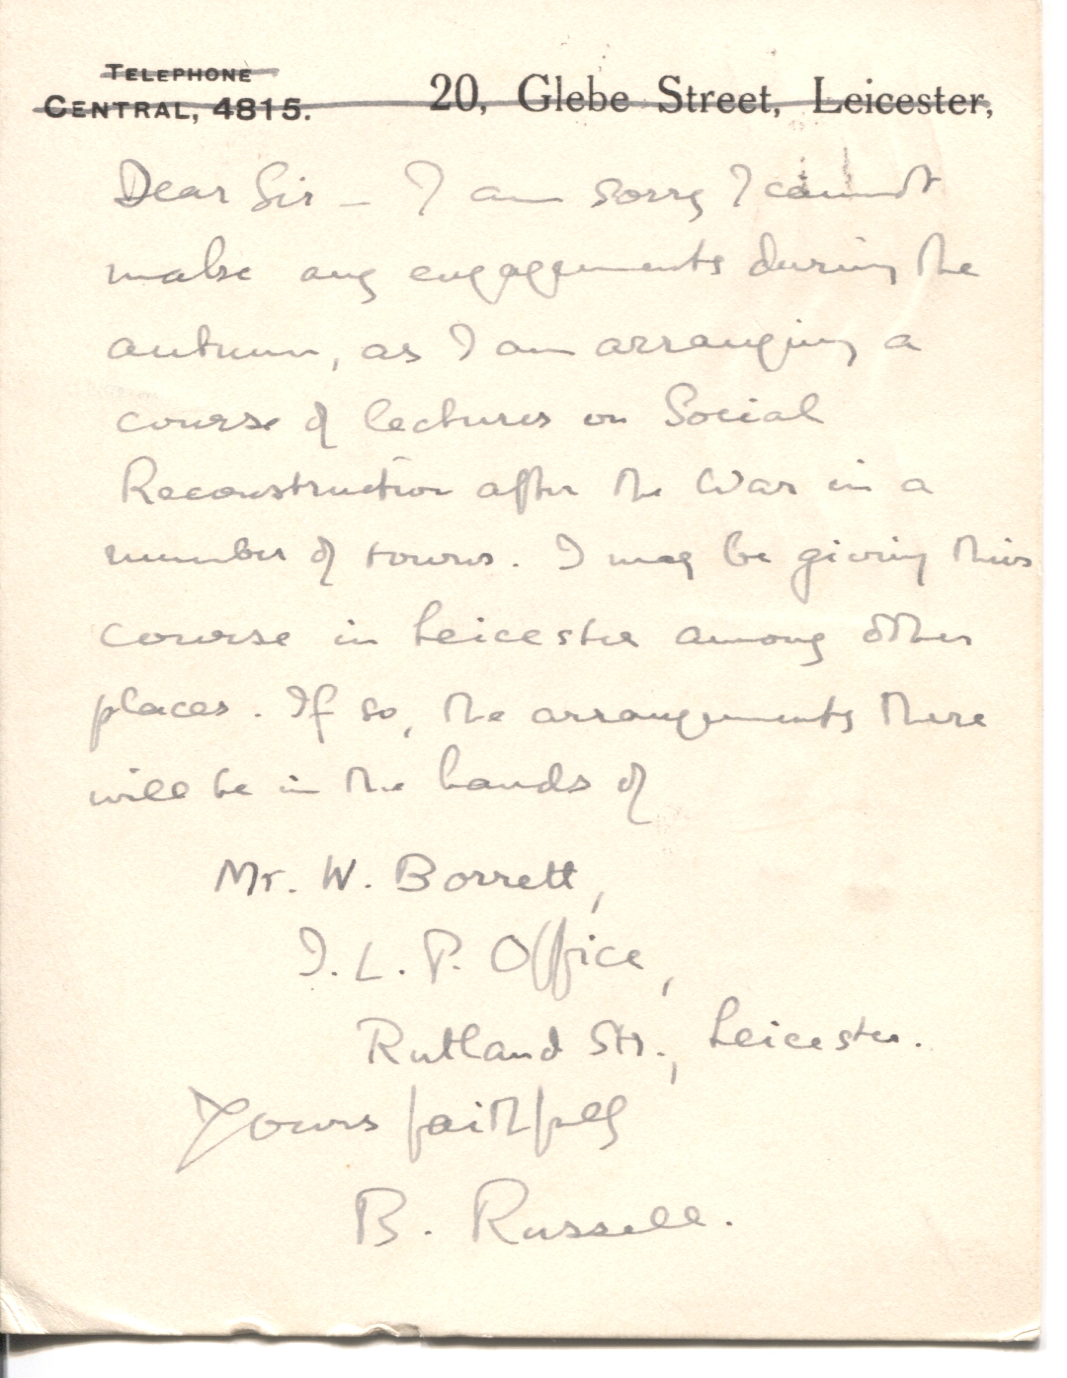 TELEPHONE
CENTRAL, 4815. 20, Glebe Street, Leicester,
Dear Sir – I am sorry I cannot
make any engagements during the
autumn, as I am arranging a
course of lectures on Social
Reconstruction after the War in a
number of towns. I may be giving this
course in Leicester among other
places. If so, the arrangements there
will be in the hands of
Mr. W. Borrett,
I. L. P. Office,
Rutland Str., Leicester.
Yours faithfully
B. Russell.